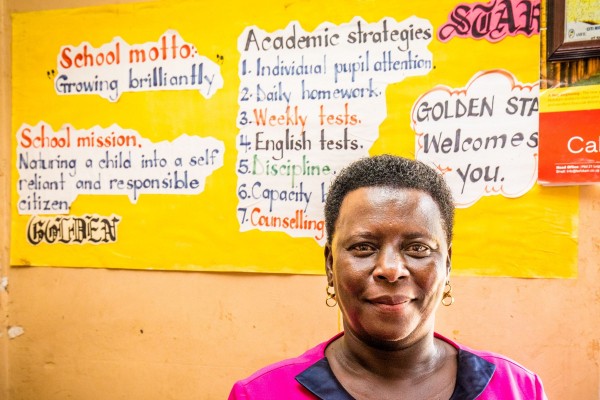 School motto:
"Growing brilliantly"
School mission.
Naturing a child into a self
reliant and responsible
citizen.
GOLDEN
Academic strategies
1. Individual pupil attention.
2. Daily homework.
3. Weekly tests.
4. English tests.
5. Discipline.
6. Capacity
7. Counselling
STAR
GOLDEN STA
Welcomes
you.
Cal